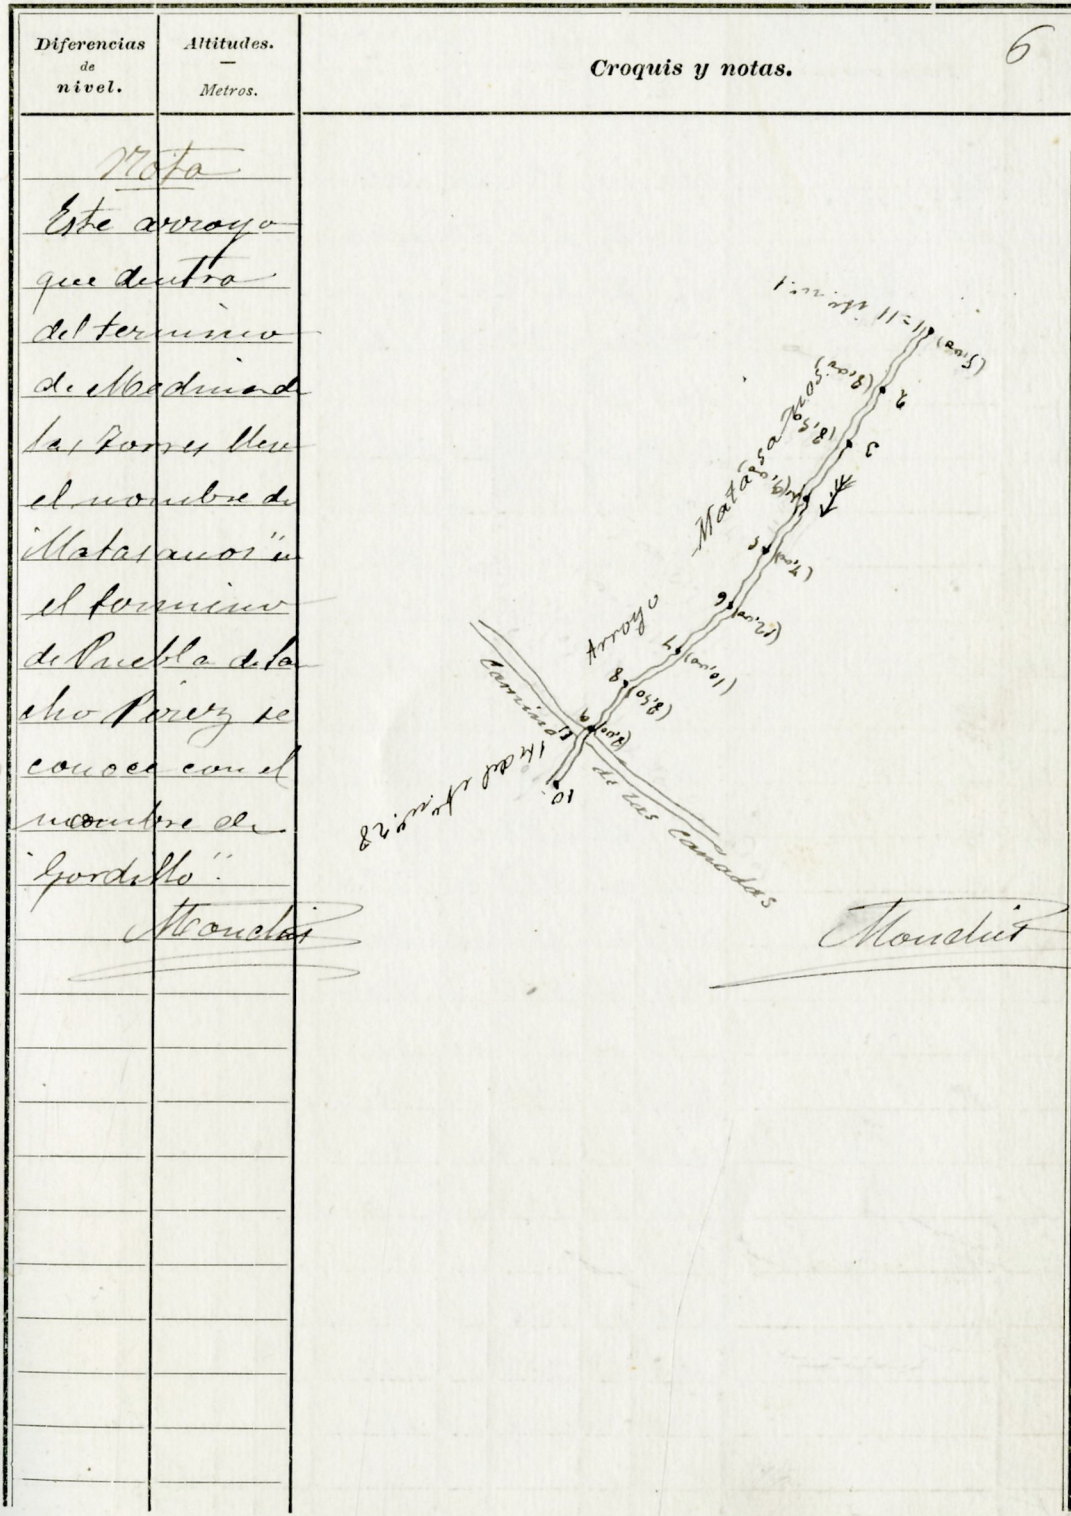 6
Diferencias
de
nivel.
Altitudes.
Metros.
Croquis y notas.
Nota
Este arroyo
que dentro
del termino
de Medina de
las Torres lleva
el nombre de
"Matasanos" en
el termino
de Puebla de San
cho Perez se
conoce con el
nombre de
"Gordillo".
Monclus
Arroyo Matasanos
2
3
5
6
(12,00)
7
(10,00)
8
(8,50)
9
10
Camino de las Cañadas
del itº nº 28
Monclus